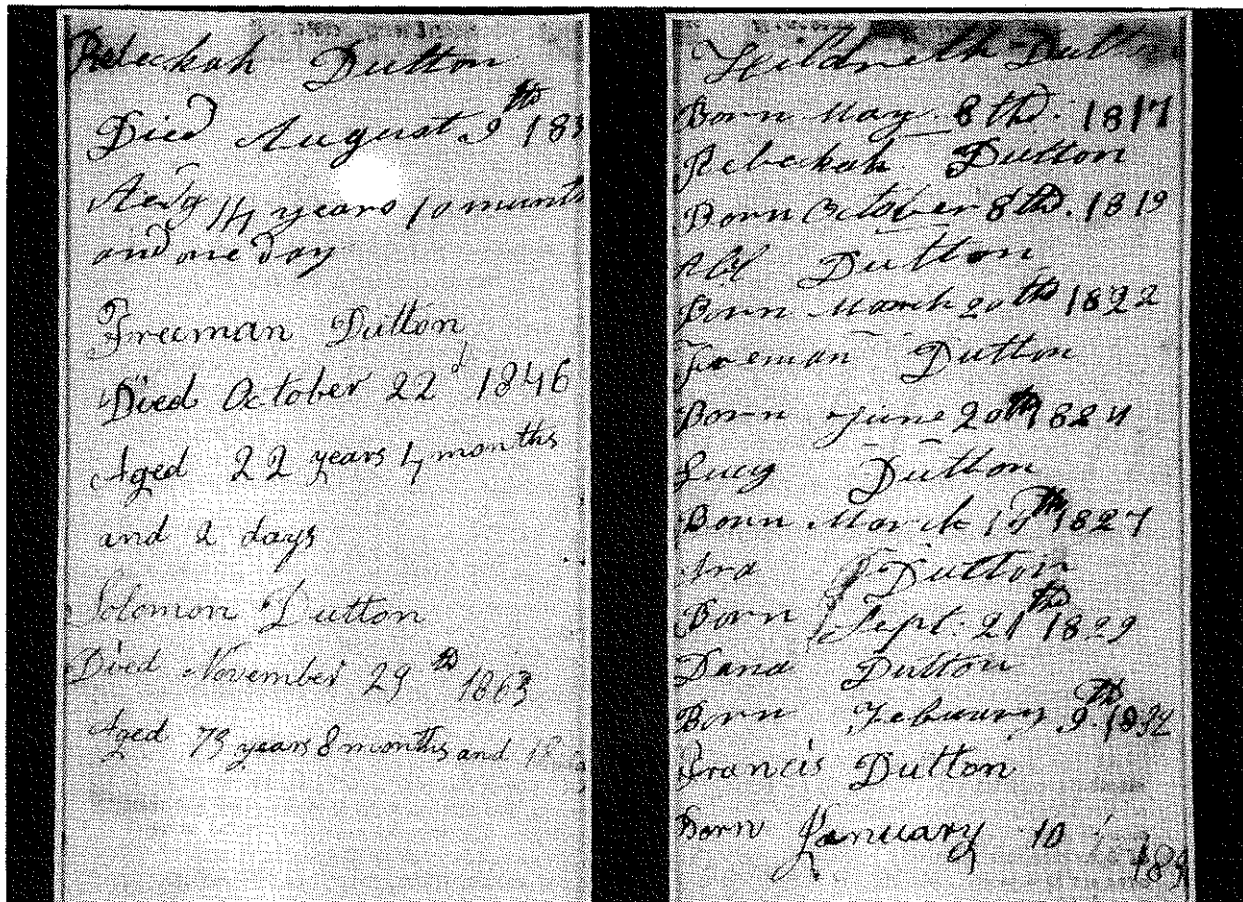 Rebeckah Dutton
Died August 9th 183
Aedg 14 years 10 munts
and one Day
Freeman Dutton
Died October 22d 1846
Aged 22 years 4 months
and 2 days
Solomon Dutton
Died November 29th 1863
Aged 73 years 8 months and 18
Hildreth Dutton
Born May 8th. 1817
Rebeckah Dutton
Born October 8th. 1819
Dutton
Born March 20th 1822
Freeman Dutton
Born June 20th 1824
Lucy Dutton
Born March 17th 1827
Ira Dutton
Born Sept. 21th 1829
Dana Dutton
Born Febuary 9th. 1832
Francis Dutton
Born January 10
183